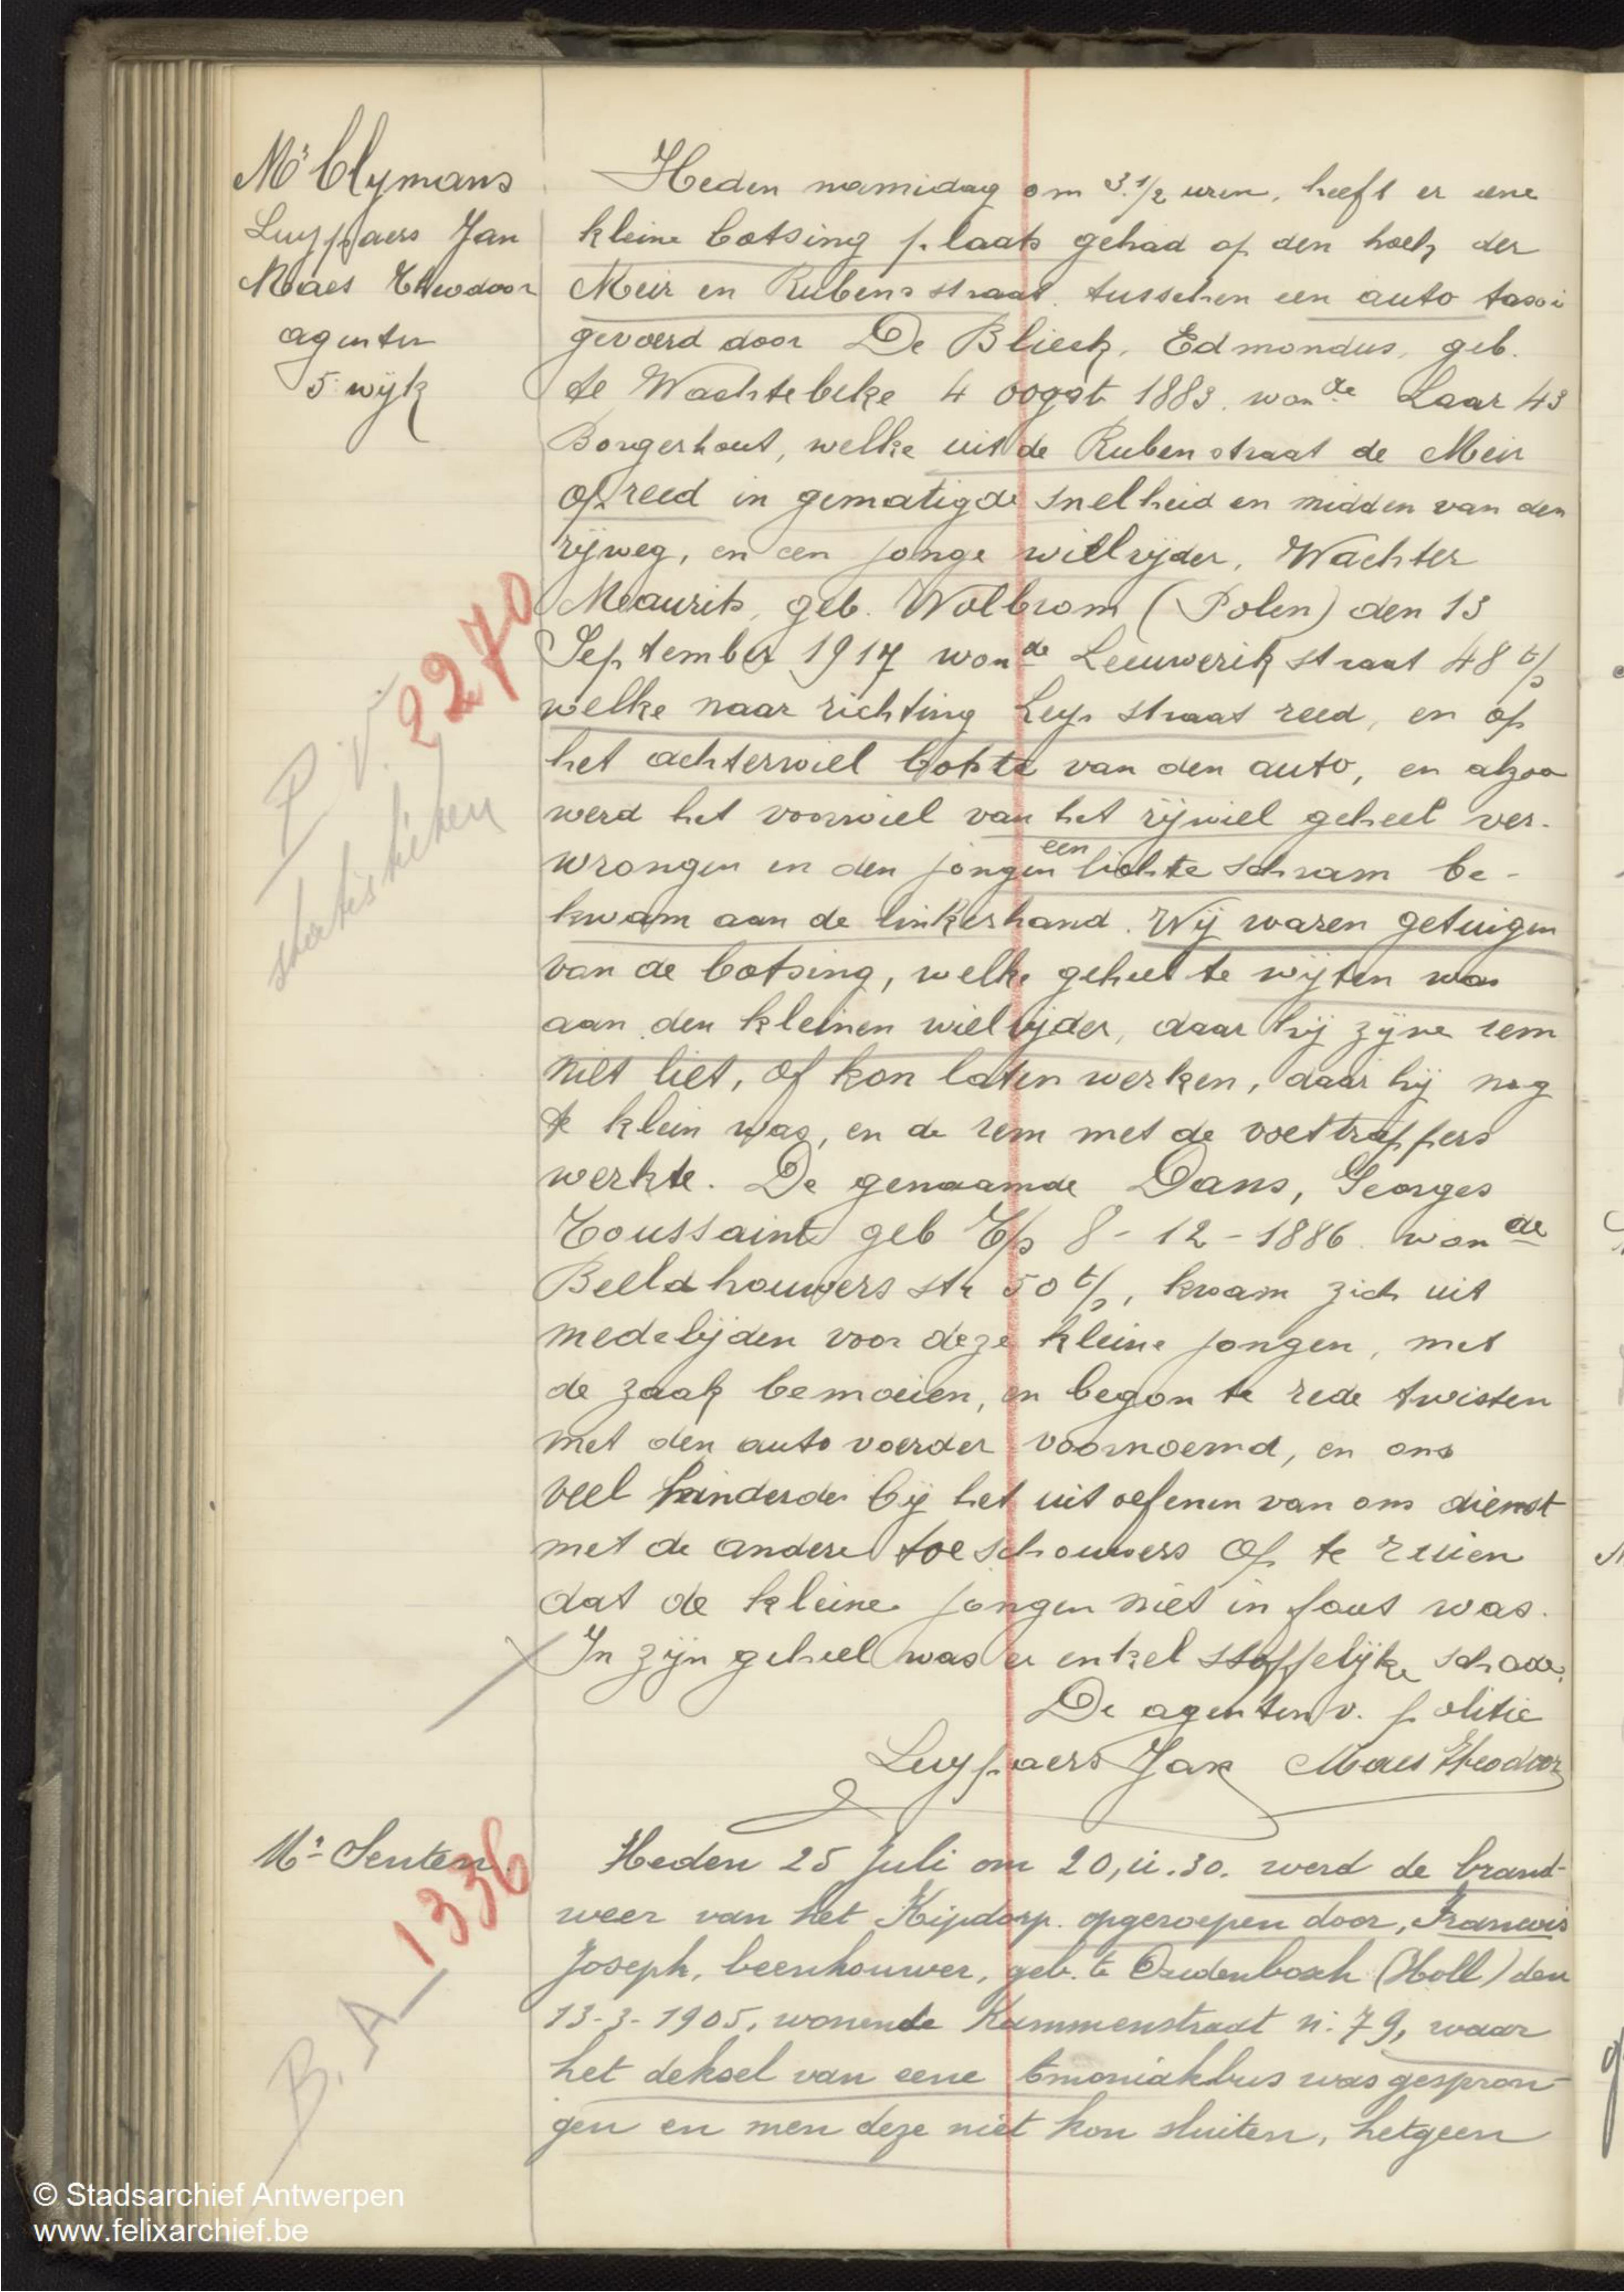 Mr Clymans
Luyppaers Jan
Maes Theodoor
agenten
5e wijk
P.V. 2270
statistieken
Heden namidag om 3.1/2 uren, heeft er eene
kleine botsing plaats gehad op den hoek der
Meir en Rubensstraat. tusschen een auto taxi
gevoerd door De Blieck, Edmondus, geb.
te Wachtebeke 4 oogst 1883. wonde Laar 43
Borgerhout, welke uit de Rubenstraat de Meir
opreed in gematigde snelheid en midden van den
rijweg, en een jonge wielrijder, Wachter
Maurits, geb. Wolbrom (Polen) den 13
September 1917 wonde Leeuwerikstraat 48 t/s
welke naar richting Leysstraat reed, en op
het achterwiel botste van den auto, en alzoo
werd het voorwiel van het rijwiel geheel ver-
wrongen en den jongen een lichte schram be-
kwam aan de linkerhand. Wij waren getuigen
van de botsing, welke geheel te wijten was
aan den kleinen wielrijder, daar hij zijne rem
niet liet, of kon laten werken, daar hij nog
te klein was, en de rem met de voettrappers
werkte. De genaamde Dans, Georges
Toussaint geb t/s 8-12-1886. wonde
Beeldhouwers str 50 t/s, kwam zich uit
medelijden voor deze kleine jongen, met
de zaak bemoeien, en begon te rede twisten
met den auto voerder voornoemd, en ons
veel hinderde bij het uitoefenen van ons dienst
met de andere toeschouwers op te ruien
dat de kleine jongen niet in fout was.
In zijn geheel was er enkel stoffelijke schade.
De agenten v. politie
Luyppaers Jan Maes Theodoor
Mr Senten.
B.A. 1336
Heden 25 Juli om 20,u.30. werd de brand-
weer van het Kipdorp. opgeroepen door, Francois
Joseph, beenhouwer, geb. te Oudenbosch (Holl) den
13-3-1905, wonende Kammenstraat n: 79, waar
het deksel van eene amoniakbus was gespron-
gen en men deze niet kon sluiten, hetgeen
© Stadsarchief Antwerpen
www.felixarchief.be